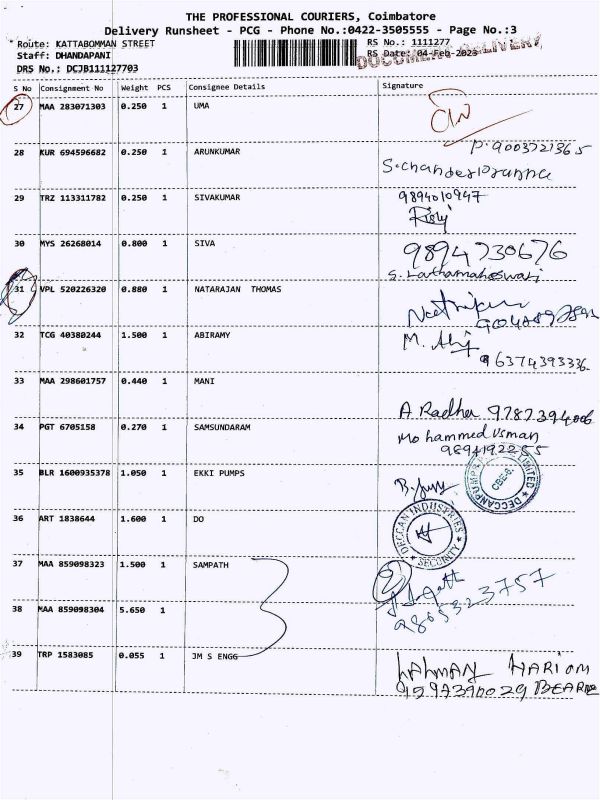 THE PROFESSIONAL COURIERS, Coimbatore
Delivery Runsheet - PCG - Phone No.:0422-3505555 - Page No.:3
Route: KATTABOMMAN STREET RS No.: 1111277
Staff: DHANDAPANI RS Date: 04-Feb-2023
DOCUMENT DELIVERY
DRS No.: DCJB111127703
S No Consignment No Weight PCS Consignee Details Signature
27 MAA 283071303 0.250 1 UMA
P.9003721365
28 KUR 694596682 0.250 1 ARUNKUMAR
29 TRZ 113311782 0.250 1 SIVAKUMAR 9894010947
30 MYS 26268014 0.800 1 SIVA 9894730676
S. Lathamaheswari
31 VPL 520226320 0.880 1 NATARAJAN THOMAS
32 TCG 40380244 1.500 1 ABIRAMY M.
96374393336
33 MAA 298601757 0.440 1 MANI
A Radha 9787394006
34 PGT 6705158 0.270 1 SAMSUNDARAM Mohammed usman
9894192255
35 BLR 1600935378 1.050 1 EKKI PUMPS B.
DECCAN PUMPS LIMITED CBE-6.
36 ART 1838644 1.600 1 DO
DECCAN INDUSTRIES SECURITY
37 MAA 859098323 1.500 1 SAMPATH
9805323757
38 MAA 859098304 5.650 1
39 TRP 1583085 0.055 1 JM S ENGG LAHMAN HARIOM
9597390029 BEARN